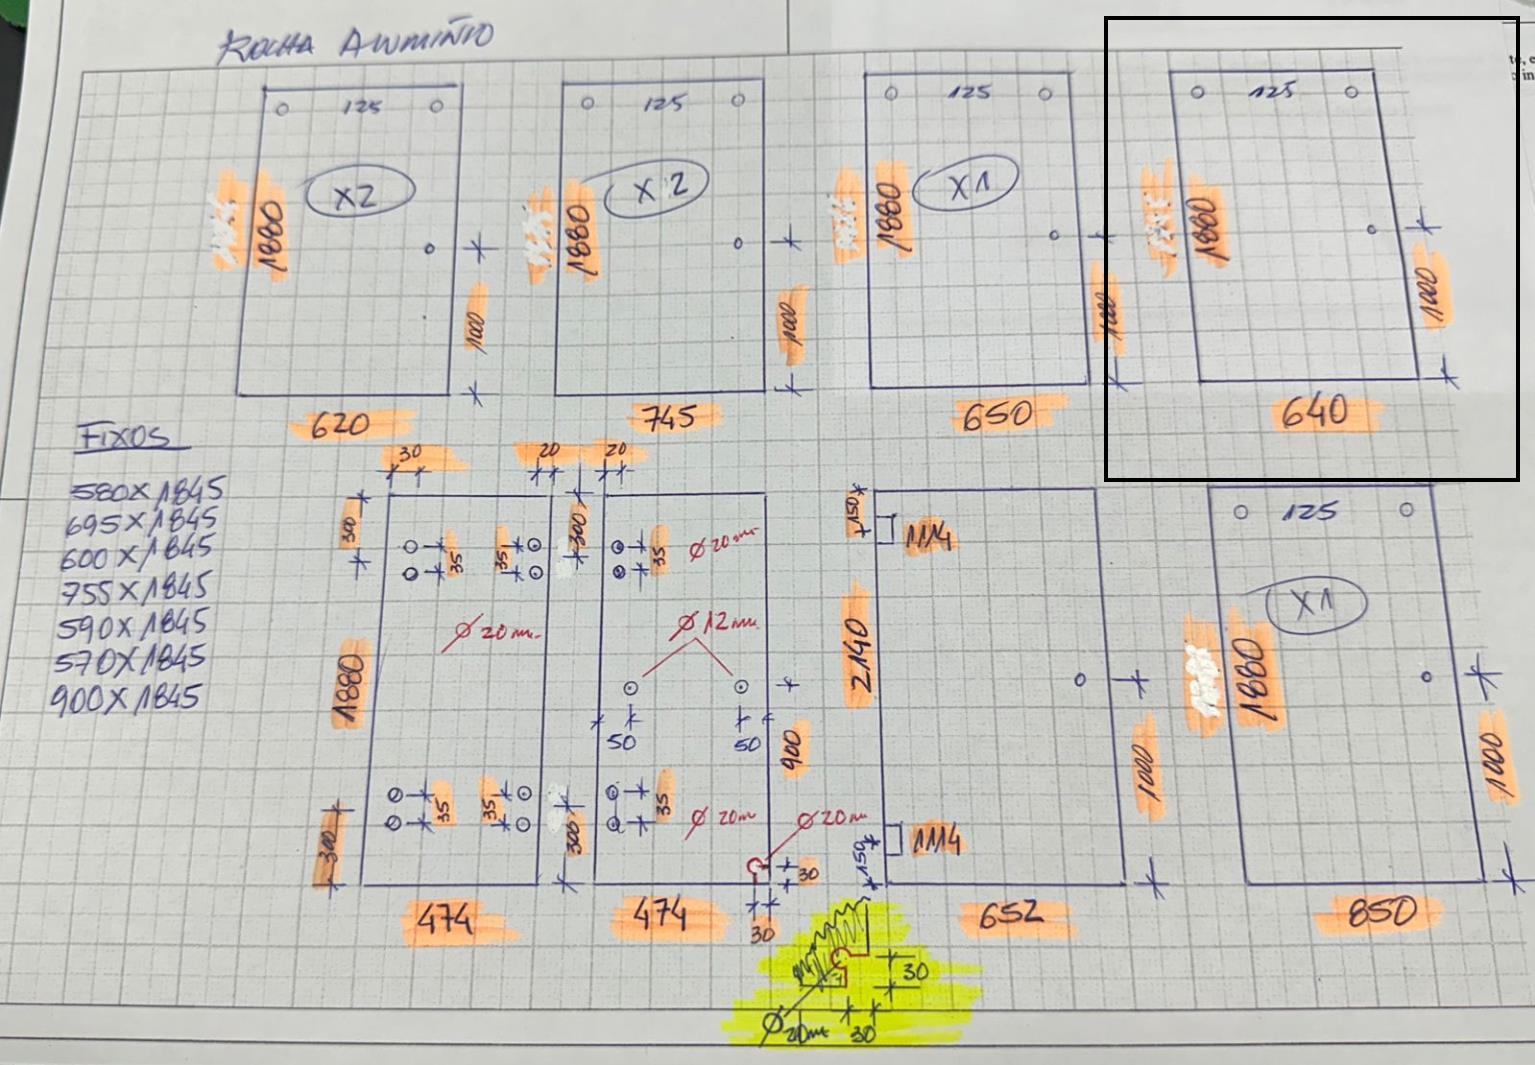 ROCHA ALUMIÑIO
125
125
125
125
X2
X2
X1
1880
1880
1880
1880
1000
1000
1000
1000
620
745
650
640
FIXOS
580X1845
695X1845
600X1845
755X1845
590X1845
570X1845
900X1845
30
20
20
300
35
35
300
35
Ø20mm
Ø20mm
Ø12mm
1880
50
50
900
300
35
35
300
35
Ø20m
Ø20m
30
474
474
30
150
1114
2140
1000
150
1114
652
125
X1
1880
1000
850
30
Ø20mm
30